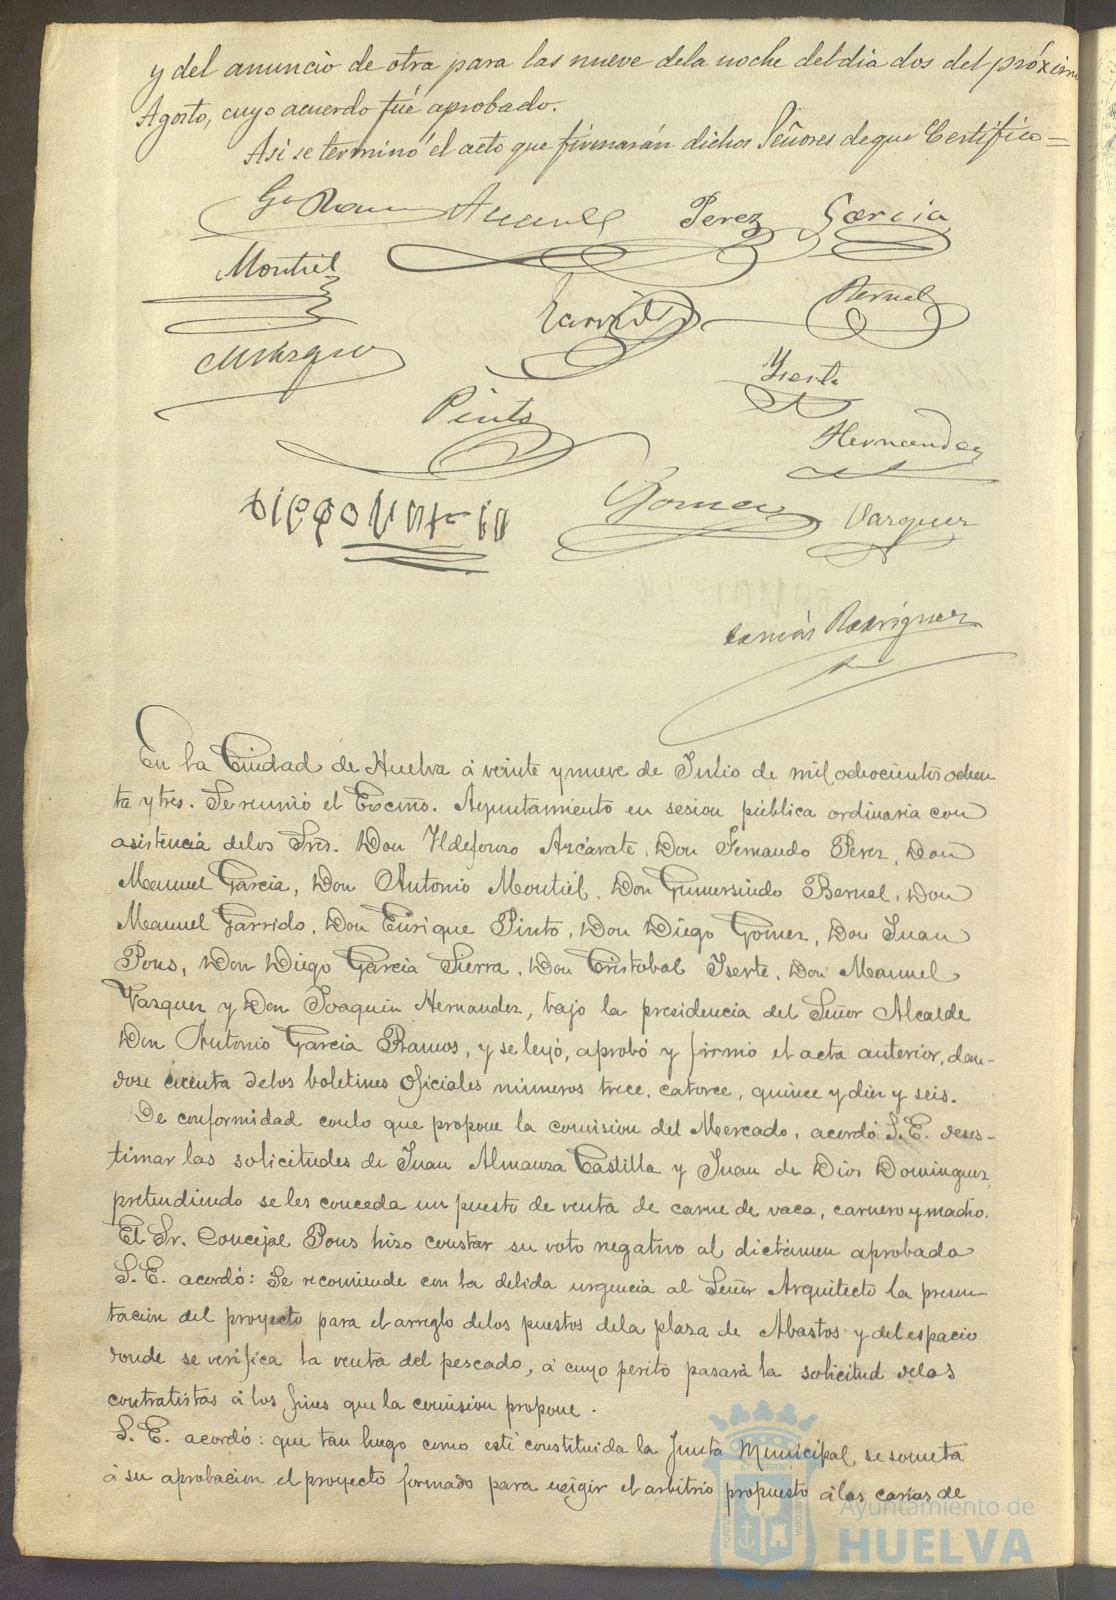 y del anuncio de otra para las nueve dela noche deldia dos del próximo
Agosto, cuyo acuerdo fué aprobado.
Asi se terminó el acto que firmarán dichos Señores deque Certifico=
Ga Ramos Azcarate Perez Garcia
Montiel
Garrido Bernal
Yserte
Pinto
Hernandez
Gomez Vazquez
Tomás Rodriguez
En la Ciudad de Huelva á veinte y nueve de Julio de mil ochocientos ochen
ta y tres. Se reunió el Excmo. Ayuntamiento en sesion pública ordinaria con
asistencia delos Sres. Don Yldefonso Azcárate, Don Fernando Perez, Don
Manuel Garcia, Don Antonio Montiel, Don Gumersindo Bernal, Don
Manuel Garrido, Don Enrique Pinto, Don Diego Gomez, Don Juan
Pons, Don Diego Garcia Sierra, Don Cristobal Yserte, Don Manuel
Vazquez y Don Joaquin Hernandez, bajo la presidencia del Señor Alcalde
Don Antonio Garcia Ramos, y se leyó, aprobó y firmó el acta anterior, dan-
dose cuenta delos boletines oficiales números trece, catorce, quince y diez y seis.
De conformidad conlo que propone la comision del Mercado, acordó S.E. deses-
timar las solicitudes de Juan Almanza Castilla y Juan de Dios Dominguez,
pretendiendo se les conceda un puesto de venta de carne de vaca, carnero y macho.
El Sr. Concejal Pons hizo constar su voto negativo al dictámen aprobado
S. E. acordó: Se recomiende con la debida urgencia al Señor Arquitecto la presen-
tacion del proyecto para el arreglo delos puestos dela plaza de Abastos y del espacio
donde se verifica la venta del pescado, á cuyo perito pasará la solicitud delos
contratistas á los fines que la comision propone.
S. E. acordó: que tan luego como esté constituida la Junta Municipal se someta
á su aprobacion el proyecto formado para exigir el arbitrio propuesto á las casas de
Ayuntamiento de
HUELVA